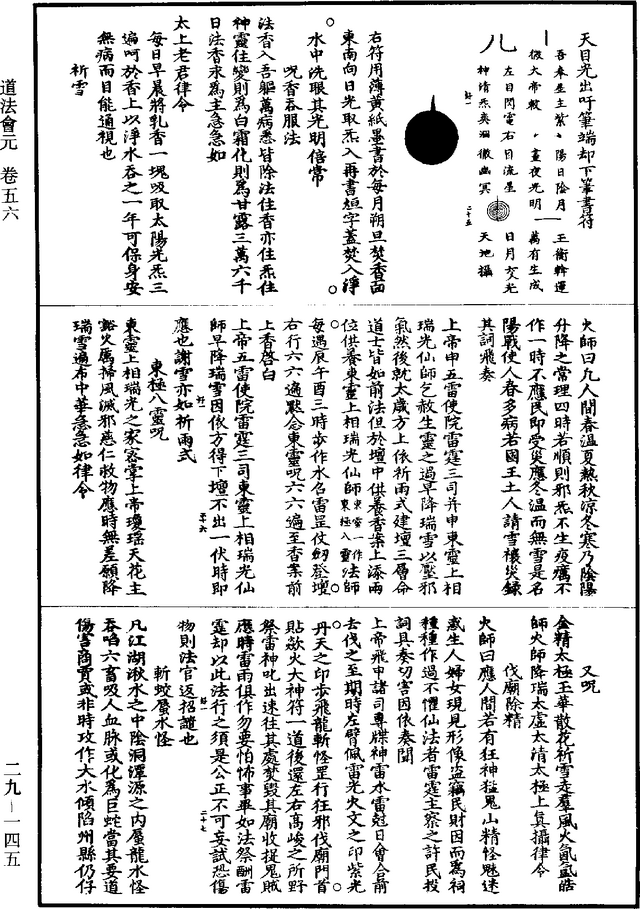 道法會元 卷五六
二九—一四五
天目光出吁筆端却下筆書符
吾奉星主紫
陽日陰月
玉衡斡運
微大帝敕
晝夜光明
萬有生成
左目閃電右目流星
日月交光
神清炁爽洞徹幽冥
天地攝
右符用薄黃紙墨書於每月朔旦焚香面
東南向日光取炁入再書烜字蓋焚入淨
水中洗眼其光明倍常
呪香吞服法
法香入吾軀萬病悉皆除法住香亦住炁住
神靈住變則為白霜化則為甘露三萬六千
日法香永為主急急如
太上老君律令
每日早晨將乳香一塊吸取太陽光炁三
遍呵於香上以淨水吞之一年可保身安
無病而目能通視也
祈雪
火師曰凡人間春溫夏熱秋涼冬寒乃陰陽
升降之常理四時若順則邪炁不生疫癘不
作一時不應民即受災應冬溫而無雪是名
陽戰使人春多病若國王土人請雪禳災錄
其詞飛奏
上帝申五雷使院雷霆三司并申東靈上相
瑞光仙師乞赦生靈之過早降瑞雪以壓邪
氣然後就太歲方上依祈雨式建壇三層命
道士皆如前法但於壇中供養香案上添兩
位供養東靈上相瑞光仙師東靈一作東極八靈法師
每遇辰午酉三時步作水名雷罡仗劒登壇
右行六六遍默念東靈呪六六遍至香案前
上香啓白
上帝五雷使院雷霆三司東靈上相瑞光仙
師早降瑞雪因依方得下壇不出一伏時即
應也謝雪亦如祈雨式
東極八靈呪
東靈上相瑞光之家密掌上帝瓊瑶天花主
谿火厲掃風滅邪慈仁救物應時無差願降
瑞雪遍布中華急急如律令
又呪
金精太極玉華散花祈雪走羣風火氤氲皓
師火師降瑞太虛太清太極上真攝律令
伐廟除精
火師曰應人間若有狂神猛鬼山精怪魅迷
惑生人婦女現見形像盜竊民財因而為祠
種種作過不懼仙法者雷霆主察之許民投
詞具奏切害因依奏聞
上帝飛申諸司專牒神雷水雷尅日會合前
去伐之至期時左臂佩雷光火文之印紫光
丹天之印步飛龍斬怪罡行狂邪伐廟門首
貼欻火大神符一道後還左右高峻之所野
祭雷神叱出速往其處焚毀其廟收捉鬼賊
應時雷雨俱作勿要怕怖事畢如法祭酬雷
霆却以此法行之須是公正不可妄試恐傷
物則法官返招譴也
斬蛟蜃水怪
凡江湖湫水之中陰洞潭源之内蜃龍水怪
吞啗六畜吸人血脉或化為巨蛇當其要道
傷害商賈或非時攻作大水傾陷州縣仍仔